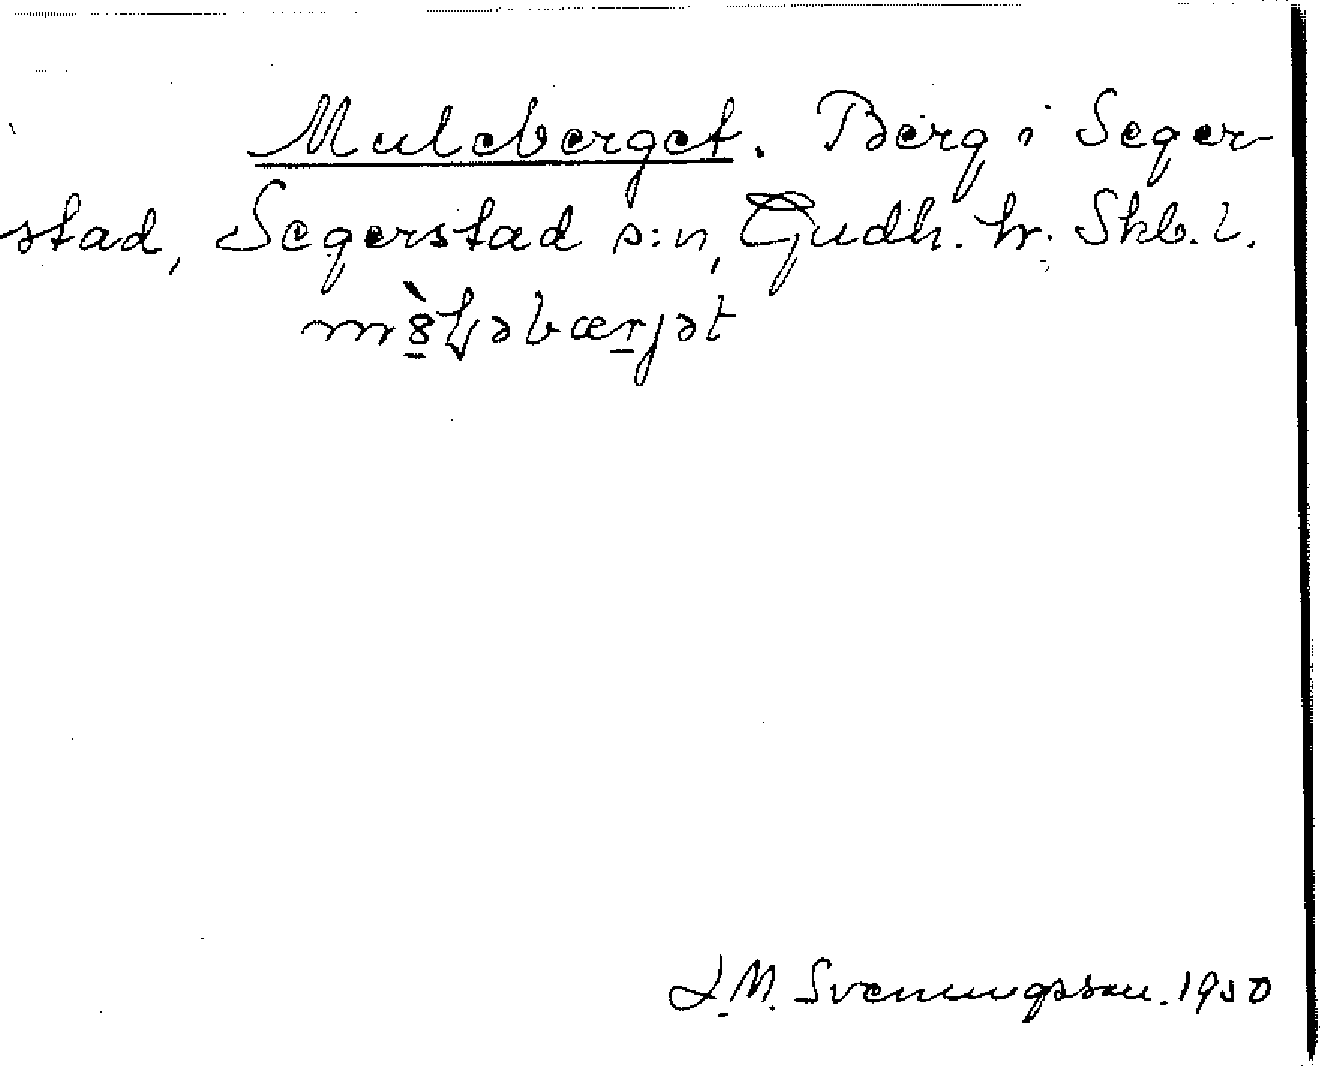 Muleberget. Berg i Seger-
stad, Segerstad s:n, Gudh. hr. Skb. l.
mə̀8ɭəbærjət
J.M. Svenningsson. 1950